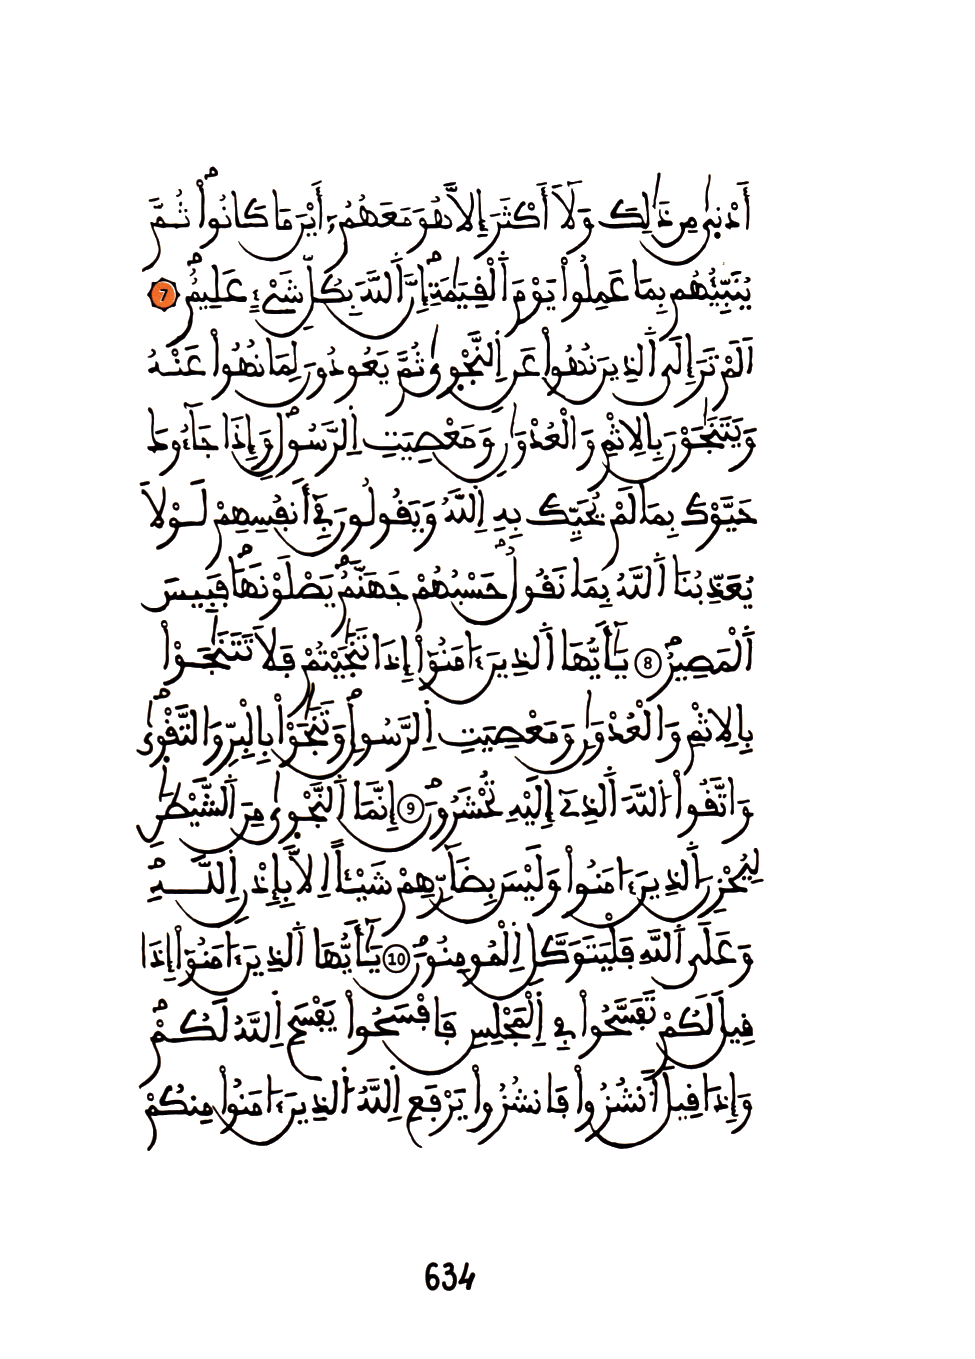 أَدْنٜيٰ مِن ذَٰلِكَ وَلَآ أَكْثَرَ إِلَّا هُوَ مَعَهُمُۥٓ أَيْنَ مَا كَانُواْ ثُمَّ
يُنَبِّئُهُم بِمَا عَمِلُواْ يَوْمَ اَ۬لْقِيَٰمَةِۖ إِنَّ اَ۬للَّهَ بِكُلِّ شَےْءٍ عَلِيمٌۖ 7
اَلَمْ تَرَ إِلَي اَ۬لذِينَ نُهُواْ عَنِ اِ۬لنَّجْو۪يٰ ثُمَّ يَعُودُونَ لِمَا نُهُواْ عَنْهُ
وَيَتَنَٰجَوْنَ بِالِاثْمِ وَالْعُدْوَٰنِ وَمَعْصِيَتِ اِ۬لرَّسُولِۖ وَإِذَا جَآءُوكَ
حَيَّوْكَ بِمَا لَمْ يُحَيِّكَ بِهِ اِ۬للَّهُ وَيَقُولُونَ فِےٓ أَنفُسِهِمْ لَوْلَا
يُعَذِّبُنَا اَ۬للَّهُ بِمَا نَقُولُۖ حَسْبُهُمْ جَهَنَّمُ يَصْلَوْنَهَاۖ فَبِيسَ
اَ۬لْمَصِيرُۖ 8 يَٰٓأَيُّهَا اَ۬لذِينَ ءَامَنُوٓاْ إِذَا تَنَٰجَيْتُمْ فَلَا تَتَنَٰجَوْاْ
بِالِاثْمِ وَالْعُدْوَٰنِ وَمَعْصِيَتِ اِ۬لرَّسُولِۖ وَتَنَٰجَوْاْ بِالْبِرِّ وَالتَّقْو۪يٰۖ
وَاتَّقُواْ اُ۬للَّهَ اَ۬لذِےٓ إِلَيْهِ تُحْشَرُونَۖ 9 إِنَّمَا اَ۬لنَّجْو۪يٰ مِنَ اَ۬لشَّيْطَٰنِ
لِيُحْزِنَ اَ۬لذِينَ ءَامَنُواْ وَلَيْسَ بِضَآرِّهِمْ شَيْـٔاً اِلَّا بِإِذْنِ اِ۬للَّهِۖ
وَعَلَي اَ۬للَّهِ فَلْيَتَوَكَّلِ اِ۬لْمُومِنُونَۖ 10 يَٰٓأَيُّهَا اَ۬لذِينَ ءَامَنُوٓاْ إِذَا
قِيلَ لَكُمْ تَفَسَّحُواْ فِے اِ۬لْمَجْلِسِ فَافْسَحُواْ يَفْسَحِ اِ۬للَّهُ لَكُمْۖ
وَإِذَا قِيلَ اَ۟نشُزُواْ فَانشُزُواْ يَرْفَعِ اِ۬للَّهُ اُ۬لذِينَ ءَامَنُواْ مِنكُمْ
634